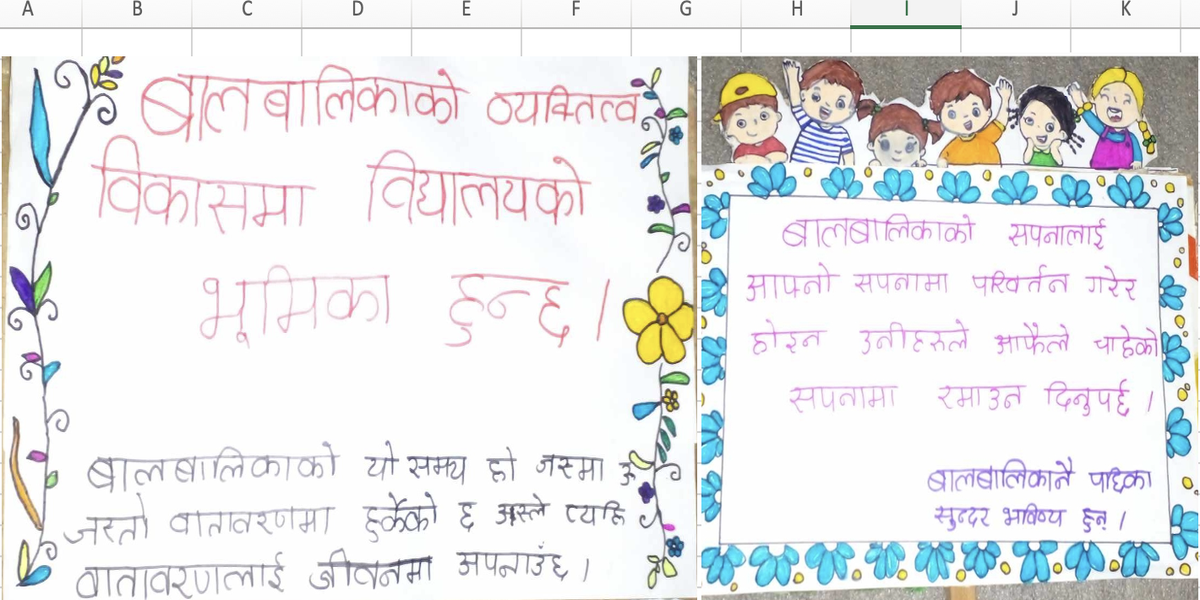 A B C D E F G H I J K
बालबालिकाको व्यक्तित्व
विकासमा विद्यालयको
भूमिका हुन्छ ।
बालबालिकाको यो समय हो जसमा ऊ
जस्तो वातावरणमा हुर्केको छ उसले त्यहि
वातावरणलाई जीवनमा अपनाउँछ ।
बालबालिकाको सपनालाई
आफ्नो सपनामा परिवर्तन गरेर
होइन उनीहरुले आफैले चाहेको
सपनामा रमाउन दिनुपर्छ ।
बालबालिकानै पहिका
सुन्दर भविष्य हुन् ।